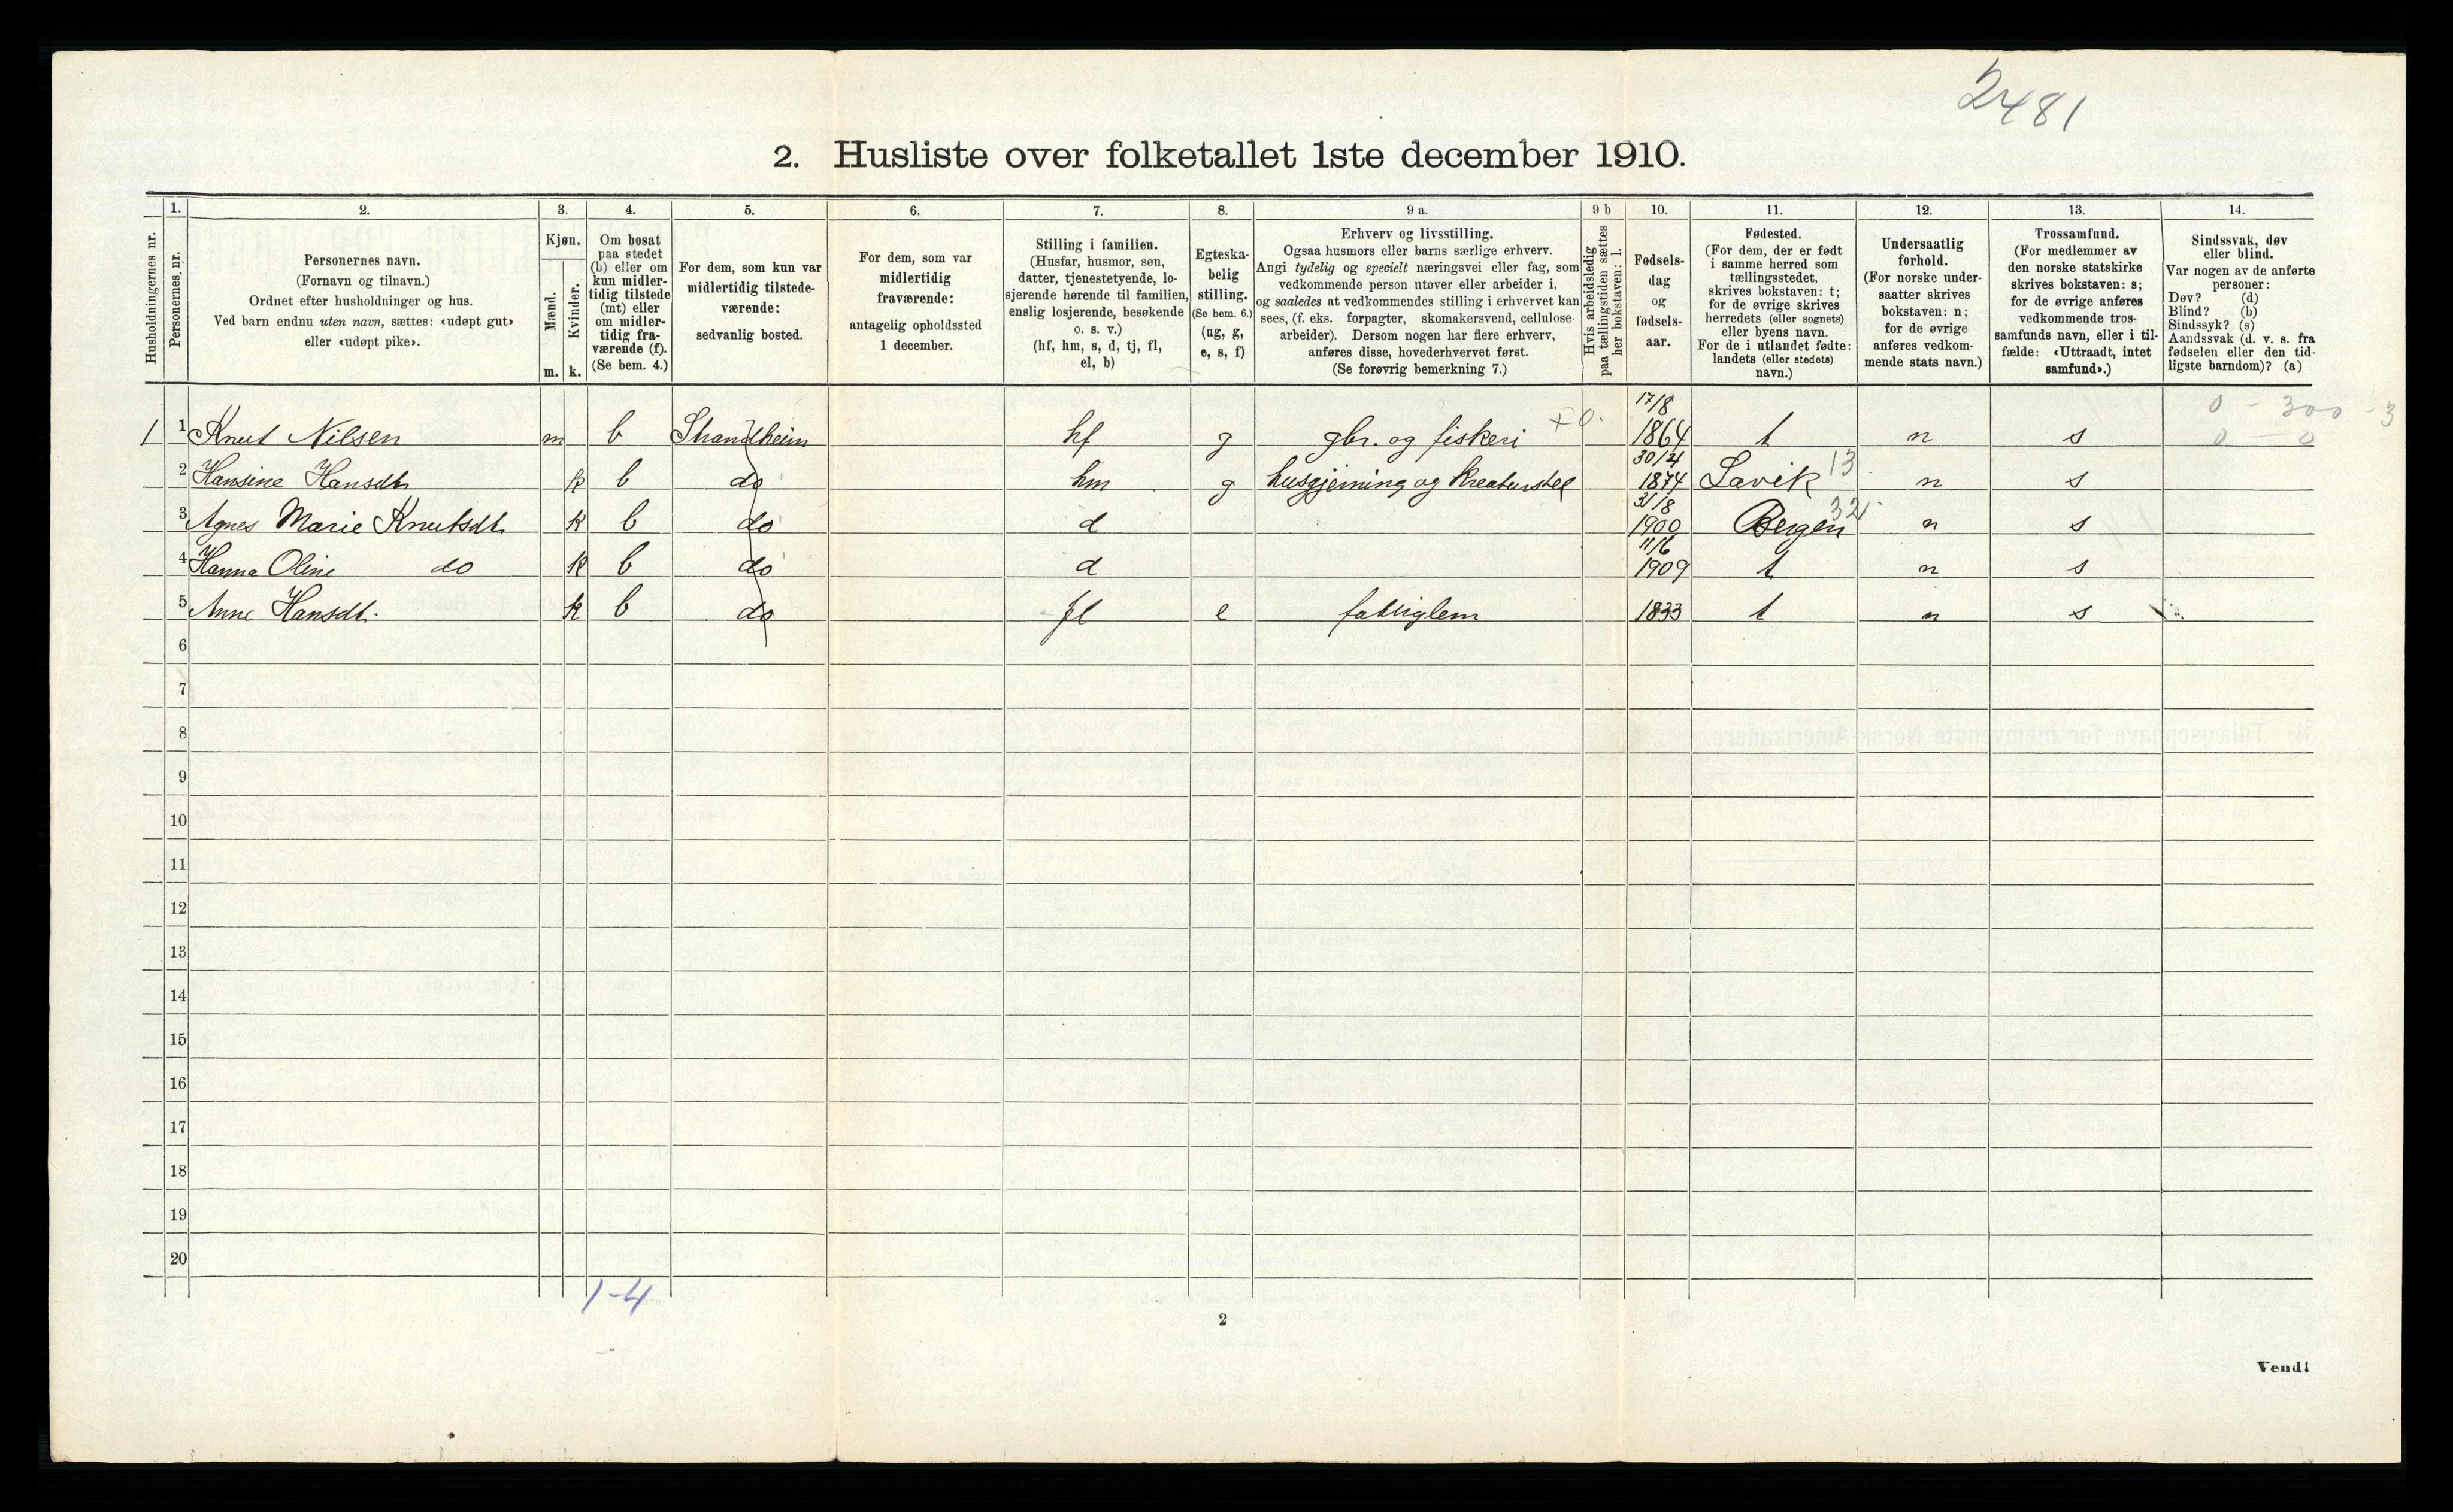 2481
2. Husliste over folketallet 1ste december 1910.
Husholdningernes nr.
1.
Personernes nr.
2.
Personernes navn.
(Fornavn og tilnavn.)
Ordnet efter husholdninger og hus.
Ved barn endnu uten navn, sættes: «udøpt gut»
eller «udøpt pike».
3.
Kjøn.
Mænd.
Kvinder.
m. k.
4.
Om bosat
paa stedet
(b) eller om
kun midler-
tidig tilstede
(mt) eller
om midler-
tidig fra-
værende (f).
(Se bem. 4.)
5.
For dem, som kun var
midlertidig tilstede-
værende:
sedvanlig bosted.
6.
For dem, som var
midlertidig
fraværende:
antagelig opholdssted
1 december.
7.
Stilling i familien.
(Husfar, husmor, søn,
datter, tjenestetyende, lo-
sjerende hørende til familien,
enslig losjerende, besøkende
o. s. v.)
(hf, hm, s, d, tj, fl,
el, b)
8.
Egteska-
belig
stilling.
(Se bem. 6.)
(ug, g,
e, s, f)
9 a.
Erhverv og livsstilling.
Ogsaa husmors eller barns særlige erhverv.
Angi tydelig og specielt næringsvei eller fag, som
vedkommende person utøver eller arbeider i,
og saaledes at vedkommendes stilling i erhvervet kan
sees, (f. eks. forpagter, skomakersvend, cellulose-
arbeider). Dersom nogen har flere erhverv,
anføres disse, hovederhvervet først.
(Se forøvrig bemerkning 7.)
9 b
Hvis arbeidsledig
paa tællingstiden sættes
her bokstaven: l.
10.
Fødsels-
dag
og
fødsels-
aar.
11.
Fødested.
(For dem, der er født
i samme herred som
tællingsstedet,
skrives bokstaven: t;
for de øvrige skrives
herredets (eller sognets)
eller byens navn.
For de i utlandet fødte:
landets (eller stedets)
navn.)
12.
Undersaatlig
forhold.
(For norske under-
saatter skrives
bokstaven: n;
for de øvrige
anføres vedkom-
mende stats navn.)
13.
Trossamfund.
(For medlemmer av
den norske statskirke
skrives bokstaven: s;
for de øvrige anføres
vedkommende tros-
samfunds navn, eller i til-
fælde: «Uttraadt, intet
samfund».)
14.
Sindssvak, døv
eller blind.
Var nogen av de anførte
personer:
Døv? (d)
Blind? (b)
Sindssyk? (s)
Aandssvak (d. v. s. fra
fødselen eller den tid-
ligste barndom)? (a)
0 - 300 - 3
0 - 0
1 1 Knut Nilsen m b Strandheim hf g gbr. og fiskeri +0. 17/8 1864 t n s
2 Hansine Hansdt k b do hm g husgjerning og Kreaturstel 30/4 1874 Lavik 13 n s
3 Agnes Marie Knutsdt k b do d 31/8 1900 Bergen 32 n s
4 Hanna Oline do k b do d 11/6 1909 t n s
5 Anne Hansdt. k b do fl e fattiglem 1833 t n s
6
7
8
9
10
11
12
13
14
15
16
17
18
19
20
1-4
2
Vend!